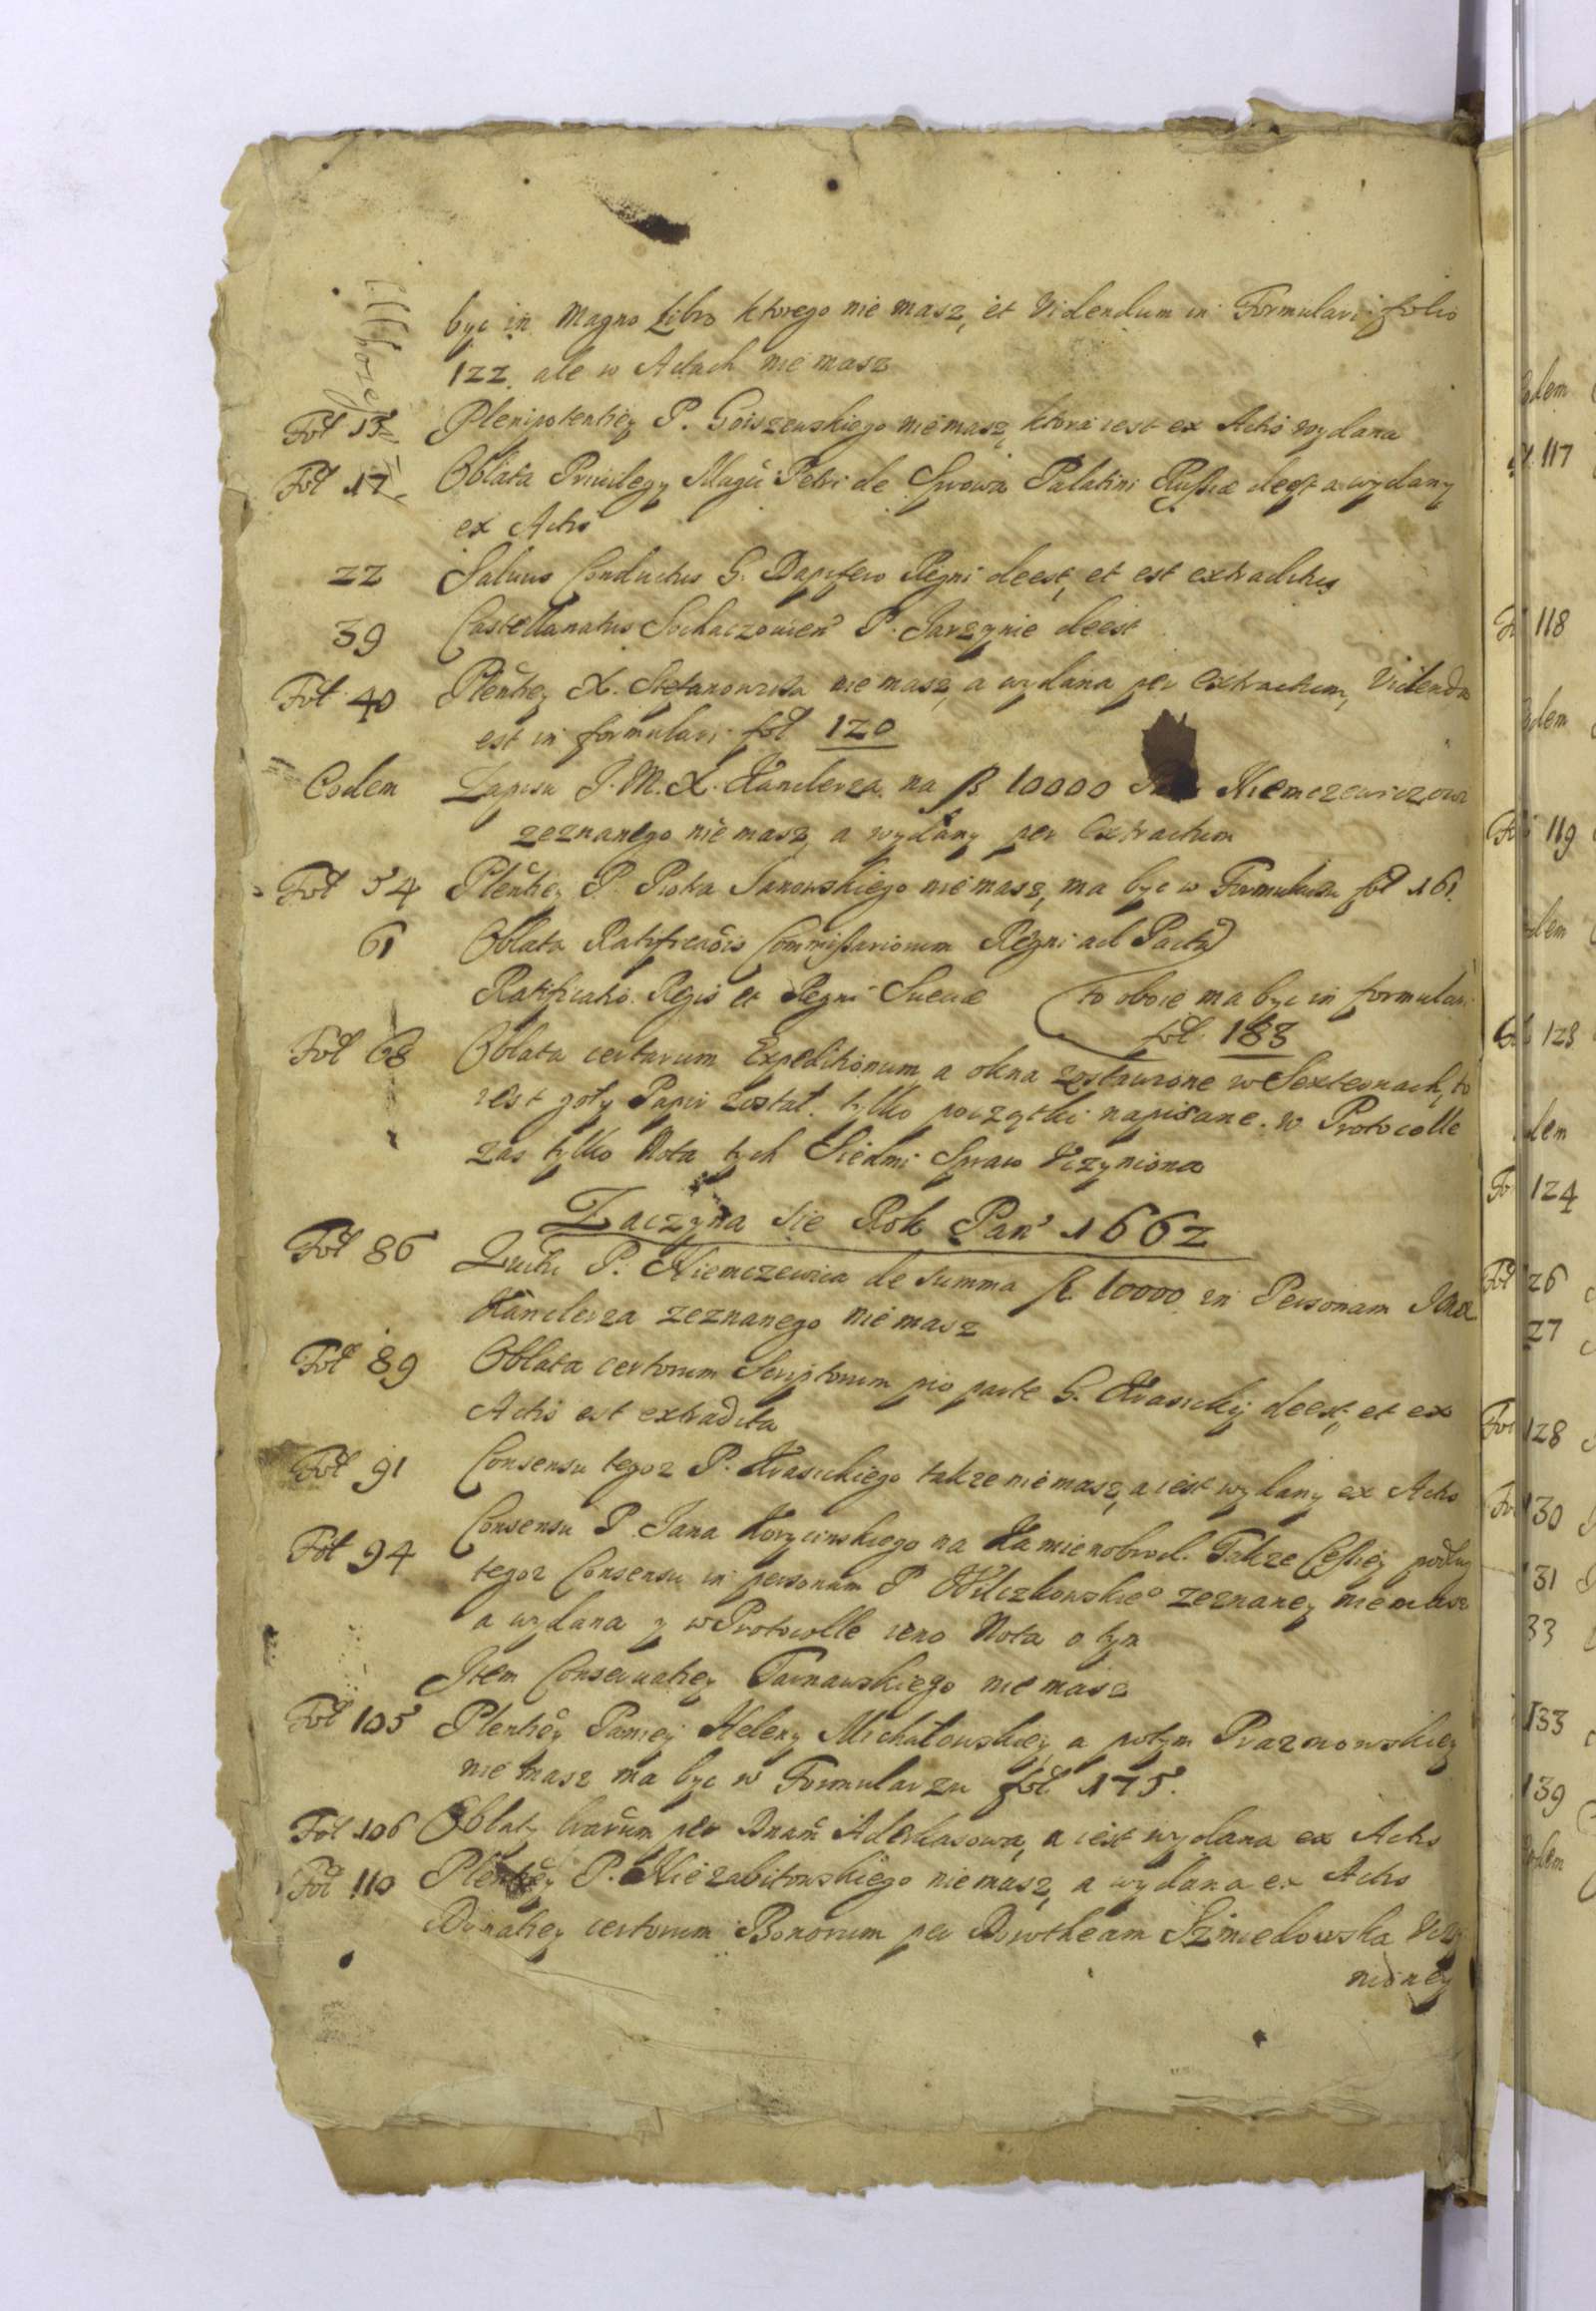 byc in Magno Libro ktorego nie masz, et Videndum in Formulari folio
122. ale w Actach nie masz
Fol 15 Plenipotentiey P. Goiszewskiego nie masz, ktora iest ex Actis wydana
Fol 17 Oblata Priuilegy Petri de Palatini Russiæ deest a wydany
ex Actis
22 Saluus Conductus G. Dapiferi Regni deest, et est extraditus
39 Castellanatus Sochaczouien P. Jarzynie deest
Fol 40 Plentiey X. nie masz, a wydana per extractum, Videnda
est in formulari fol 120
Eodem Zapisu J. M. X. Kanclerza na fl. 10000 Niemczewiczowi
zeznanego nie masz, a wydany per Extractum
Fol 54 Plentiey P. Piotra Janowskiego nie masz, ma byc w Formularzu fol 161.
61 Oblata Ratificaõis Commissariorum Regni ad Pacta
Ratificatio Regis et Regni Sueciæ to oboie ma byc in formulari
fol. 183
Fol 68 Oblata certarum Expeditionum a okna zostawione w Sexternach, to
iest goły Papir został. tylko początki napisane. w Protocolle
zas tylko Nota tych Siedmi Spraw Vczyniona
Zaczyna sie Rok Pan 1662
Fol 86 Quitu P. Niemczewica de summa fl. 10000 in Personam
Kanclerza zeznanego nie masz
Fol 89 Oblata certorum Scriptorum pro parte G. Krasicky deest, et ex
Actis est extradita
Fol 91 Consensu tegoz P. Krasickiego takze nie masz, a iest wydany ex Actis
Fol 94 Consensu P. Jana Korycinskiego na Kamienobrod. Takze Cessiey podług
tegoz Consensu in personam P Wilczkowskieo zeznaney nie masz
a wydana y w Protocolle ieno Nota o tym
Item Conseruatiey Tarnawskiego nie masz
Fol 105 Plentiey Paniey Heleny Michałowskiey, a potym Prazmowskiey
nie masz ma byc w Formularzu fol 175.
Fol 106 Oblaty per Dnam Aderkasową, a iest wydana ex Actis
Fol 110 Plentiey P. Niezabitowskiego nie masz, a wydana ex Actis
Donatiey certorum Bonorum per Dorotheam Vczy
nioney
117
118
119
123
124
126
27
128
130
131
33
133
139